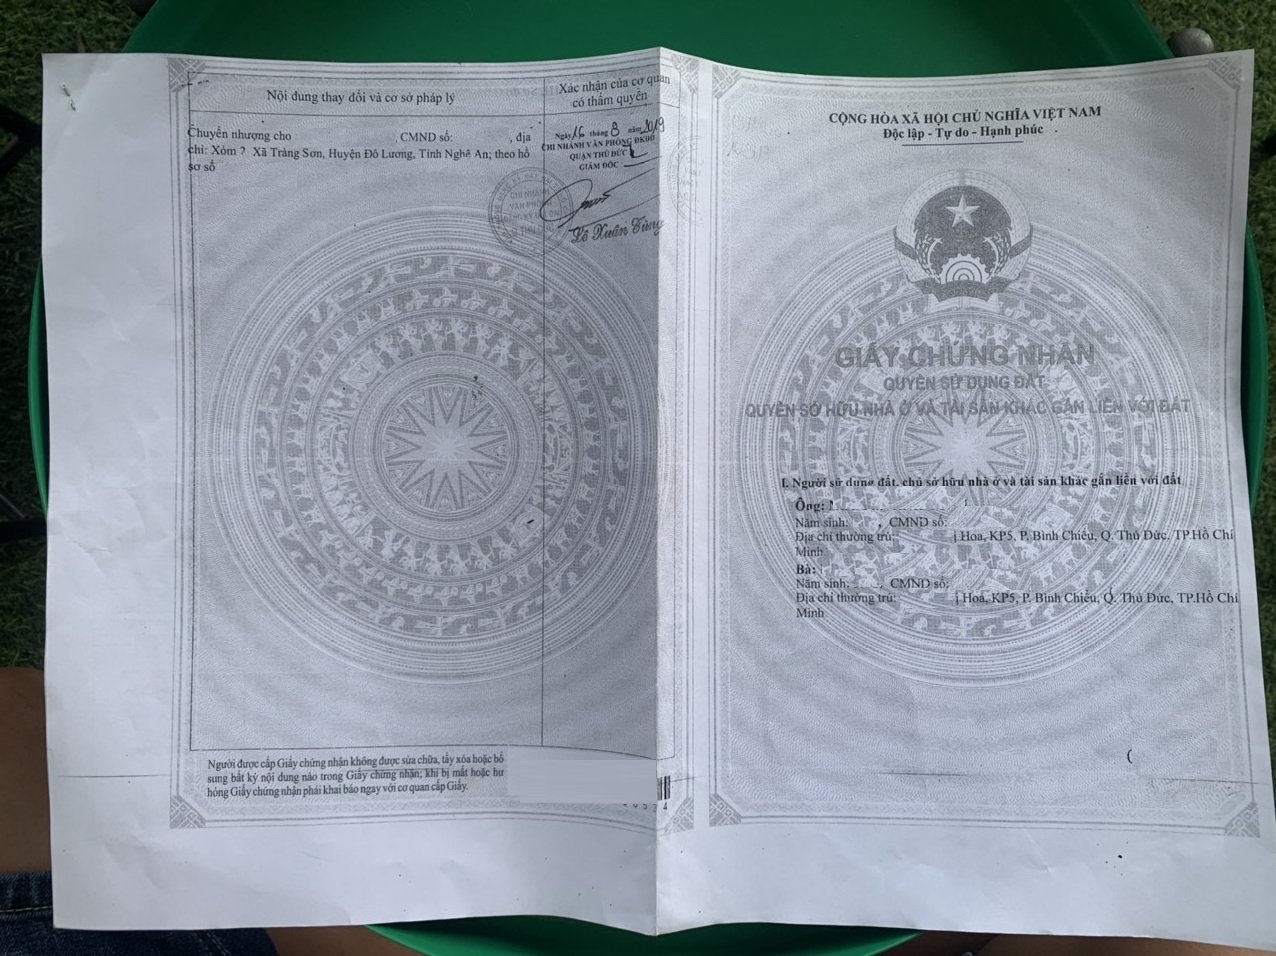 Nội dung thay đổi và cơ sở pháp lý
Xác nhận của cơ quan
có thẩm quyền
Chuyển nhượng cho , CMND số: , địa
chỉ: Xóm 2 Xã Tràng Sơn, Huyện Đô Lương, Tỉnh Nghệ An; theo hồ
sơ số
Ngày 16 tháng 8 năm 2019
CHI NHÁNH VĂN PHÒNG ĐKĐĐ
QUẬN THỦ ĐỨC
GIÁM ĐỐC
CHI NHÁNH
VĂN PHÒNG
Lê Xuân Tùng
Người được cấp Giấy chứng nhận không được sửa chữa, tẩy xóa hoặc bổ
sung bất kỳ nội dung nào trong Giấy chứng nhận; khi bị mất hoặc hư
hỏng Giấy chứng nhận phải khai báo ngay với cơ quan cấp Giấy.
CỘNG HÒA XÃ HỘI CHỦ NGHĨA VIỆT NAM
Độc lập - Tự do - Hạnh phúc
GIẤY CHỨNG NHẬN
QUYỀN SỬ DỤNG ĐẤT
QUYỀN SỞ HỮU NHÀ Ở VÀ TÀI SẢN KHÁC GẮN LIỀN VỚI ĐẤT
I. Người sử dụng đất, chủ sở hữu nhà ở và tài sản khác gắn liền với đất
Ông:
Năm sinh: , CMND số:
Địa chỉ thường trú: Hoa, KP5, P. Bình Chiểu, Q. Thủ Đức, TP.Hồ Chí
Minh
Bà:
Năm sinh: , CMND số:
Địa chỉ thường trú: Hoa, KP5, P. Bình Chiểu, Q. Thủ Đức, TP.Hồ Chí
Minh